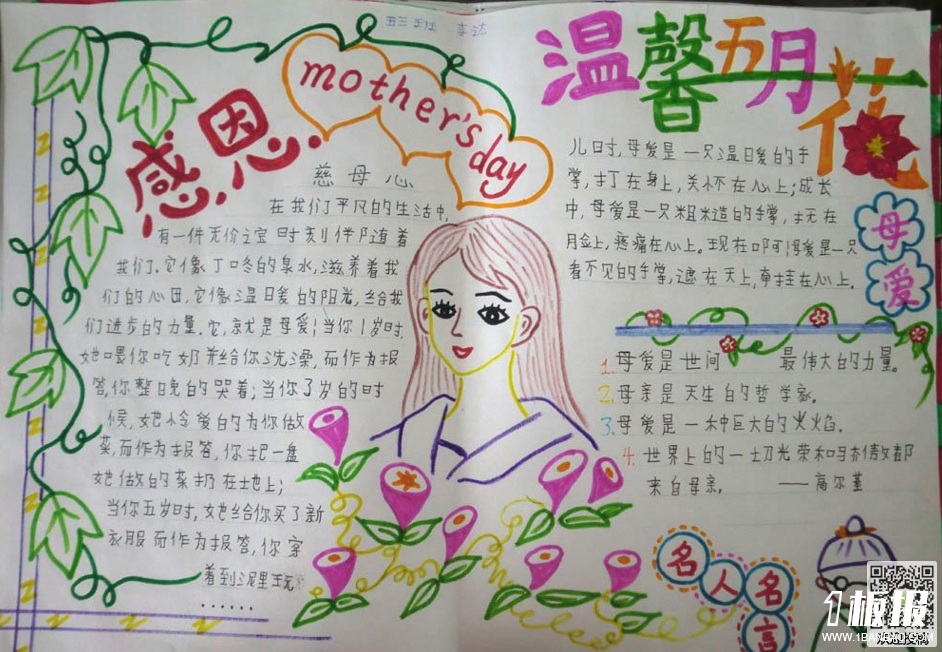 五三班 李达
温馨五月花
感恩
mother's day
慈母心
在我们平凡的生活中,
有一件无价之宝时刻伴随着
我们。它像丁咚的泉水,滋养着我
们的心田,它像温暖的阳光,给我
们进步的力量。它,就是母爱!当你1岁时,
她喂你吃奶并给你洗澡,而作为报
答,你整晚的哭着;当你3岁的时
候,她怜爱的为你做
菜,而作为报答,你把一盘
她做的菜扔在地上;
当你五岁时,她给你买了新
衣服而作为报答,你穿
着到泥里玩
......
儿时,母爱是一只温暖的手
掌,打在身上,关怀在心上;成长
中,母爱是一只粗糙的手掌,抚在
脸上,疼痛在心上。现在啊!母爱是一只
看不见的手掌,遮在天上,牵挂在心上。
母爱
1.母爱是世间 最伟大的力量。
2.母亲是天生的哲学家。
3.母爱是一种巨大的火焰。
4.世界上的一切光荣和骄傲都
来自母亲。 ——高尔基
名人名言
1板报
WWW.1BANBAO.COM